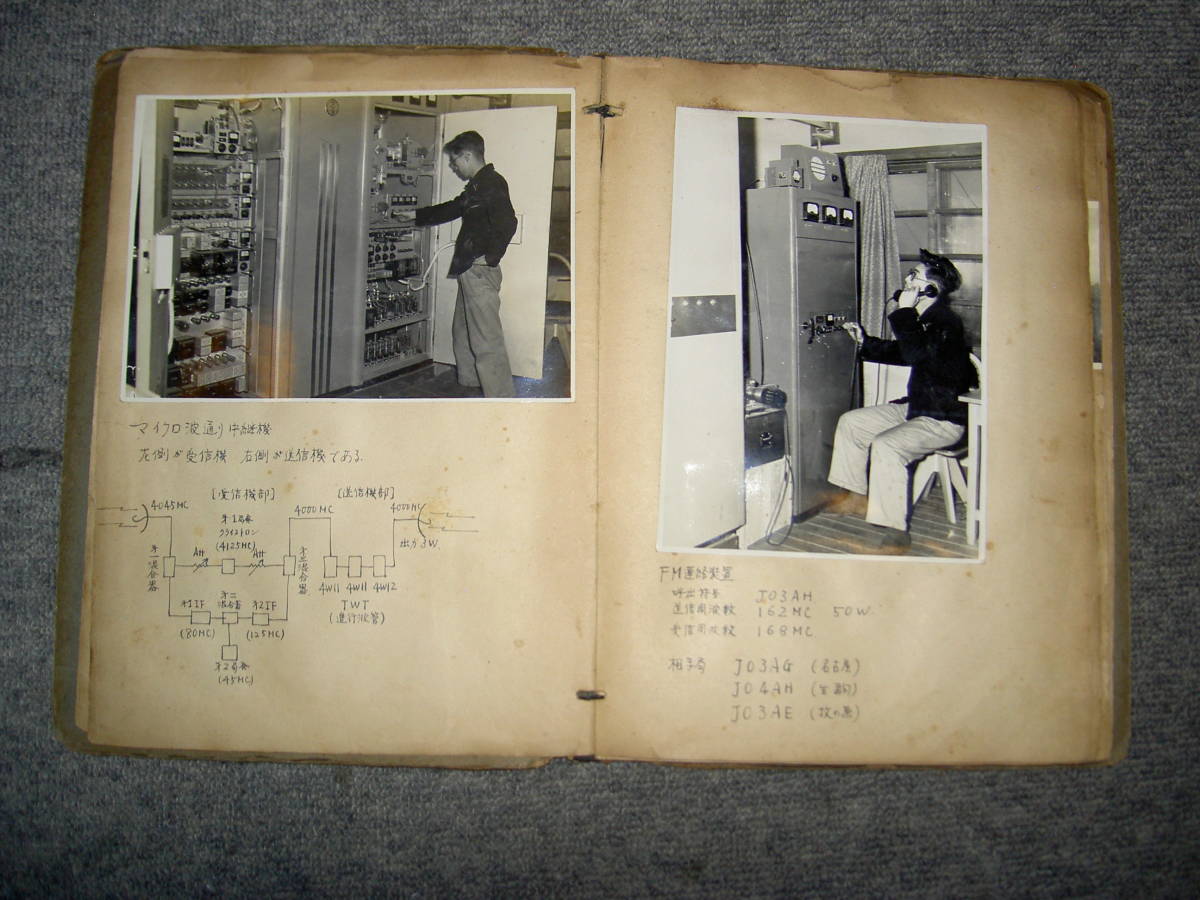 マイクロ波通り中継機
左側が受信機 右側が送信機である.
[受信機部] [送信機部]
4045MC
オ1局発
クライストロン
(4125MC)
4000MC
4000MC
出力 3W.
オ一混合器
Att
Att
オ三混合器
4W11 4W11 4W12
TWT
(進行波管)
オ1IF
(80MC)
オ二
混合器
オ2IF
(125MC)
オ2局発
(45MC)
FM連絡装置
呼出符号 JO3AH
送信周波数 162MC 50W.
受信周波数 168MC
相手局 JO3AG (名古屋)
JO4AH (生駒)
JO3AE (牧の原)